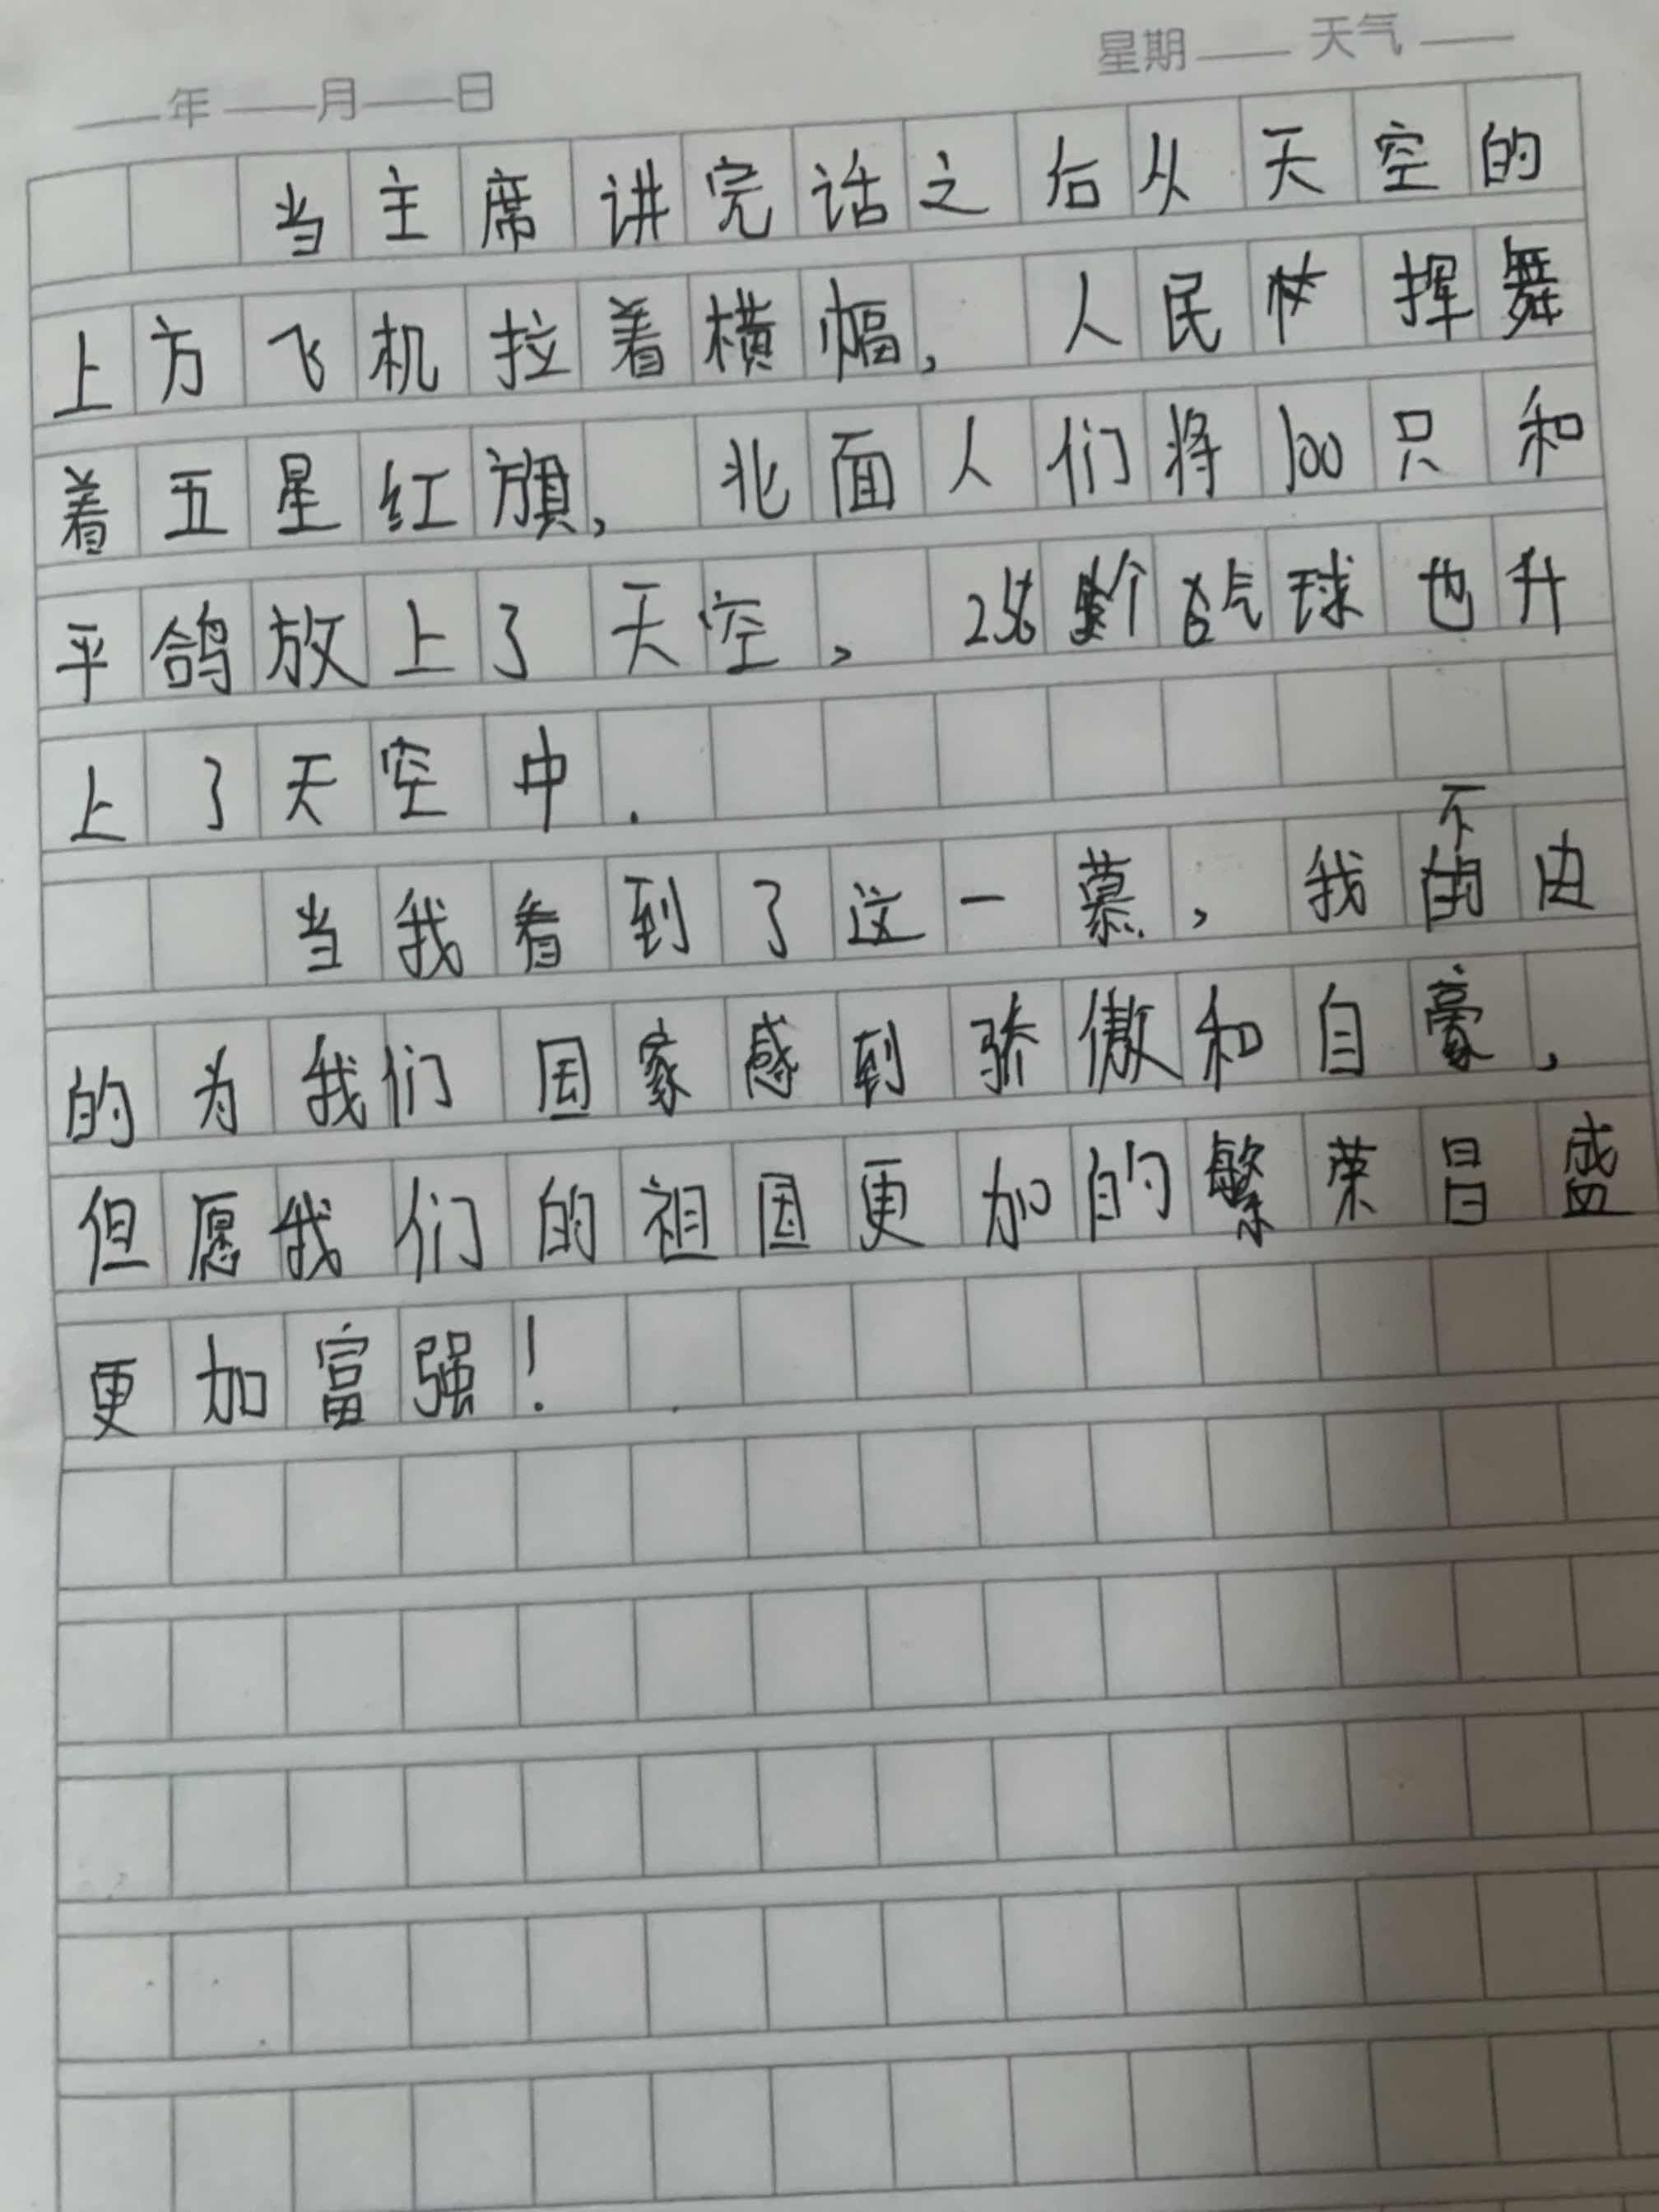 年 月 日 星期 天气
当主席讲完话之后从天空的
上方飞机拉着横幅，人民挥舞
着五星红旗，北面人们将100只和
平鸽放上了天空，个气球也升
上了天空中.
当我看到了这一慕，我不由
的为我们国家感到骄傲和自豪，
但愿我们的祖国更加的繁荣昌盛
更加富强！